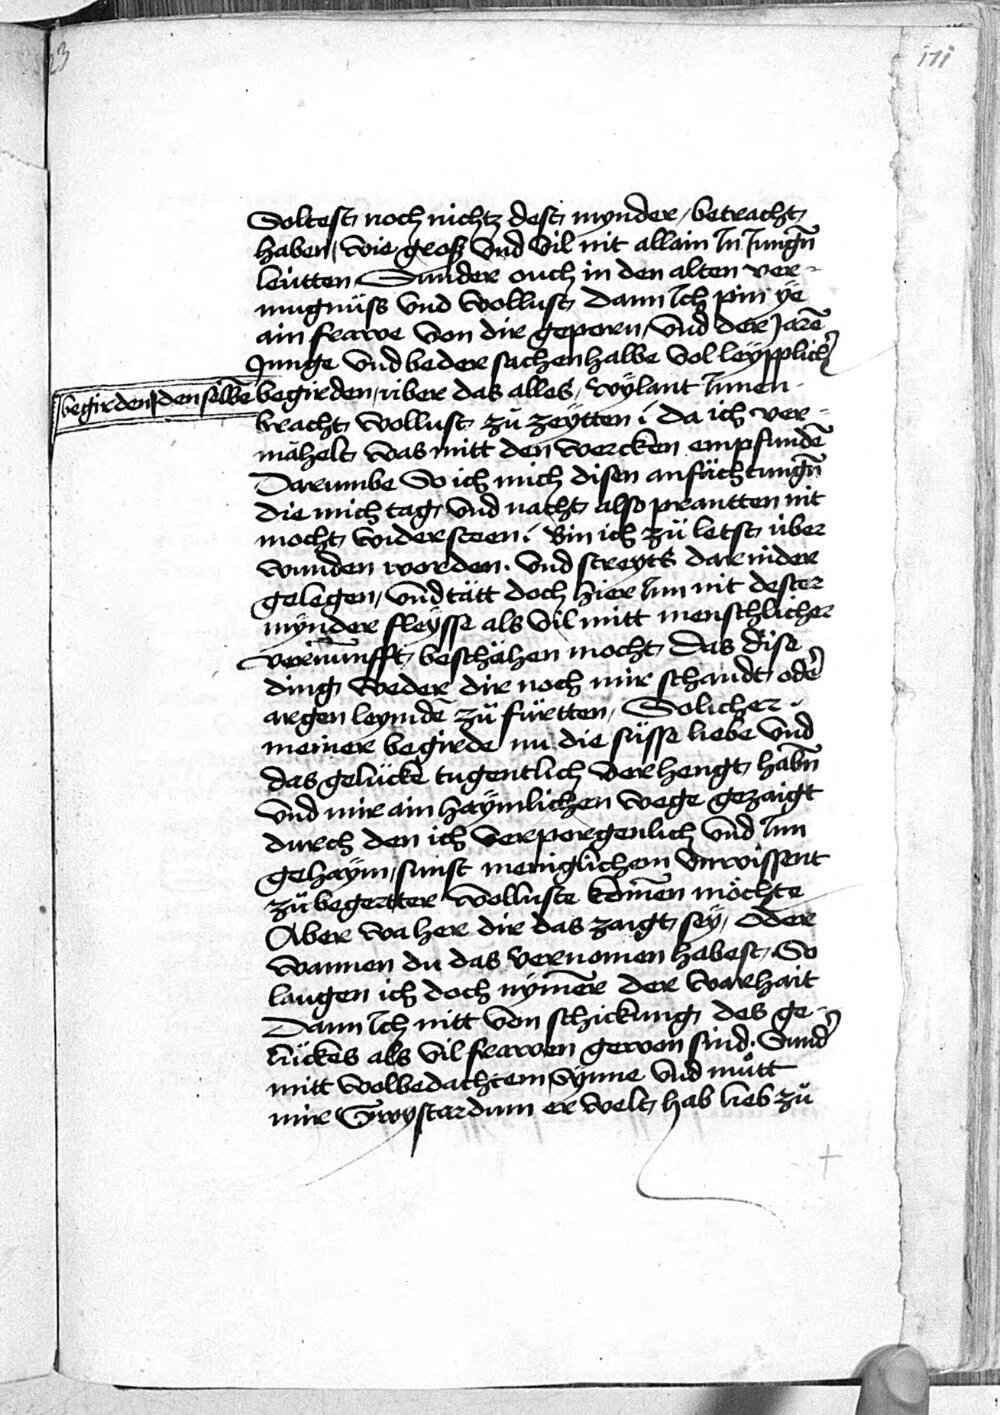 23
171
Soltest noch nichtz dest mynder / betracht
haben / wie groß vnd vil nit allain Jn Jungñ
leütten Sunder ouch in den alten ver-
mugnüss vnd wollust Dann Jch pin ye
ain frawe von dir geporn / vnd der Jarē
Junge vnd beder sachenhalbe vol leypplich
begirden den selbē
begirden / über das alles / wylant Jnnen
bracht wollust zů zeytten / da ich ver-
mähelt was mitt den wercken empfundē
Darumbe So ich mich disen anfächtungñ
die mich tag vnd nacht also prantten nit
mocht widersteen / Bin ich zů letst über
wunden worden. vnd streyts darnider
gelegen / vnd tätt doch hier Jnn nit dester
mynder fleysse als vil mitt menschlicher
vernunfft beschähen mocht Das dise
ding weder dir noch mir schandt oder
argen leymdē zů fürtten / Solicher
meiner begirde nu die süsse liebe vnd
das gelücke tugentlich verhengt habñ
vnd mir ain haymlichen wege gezaigt
durch den ich verporgenlich vnd Jnn
gehaym / sunst meniglichem vnwissent
zů begertter wolluste komen möchte
Aber wa her dir das zaigt sey / Oder
wannen du das vernomen habest / So
laugen ich doch nymer der warhait
Dann Jch nitt von schickung des ge-
lückes als vil frawen gewon sind. Sunder
mitt wolbedachtem Synne vnd mütt
mir Gwystardum er welt hab lieb zů